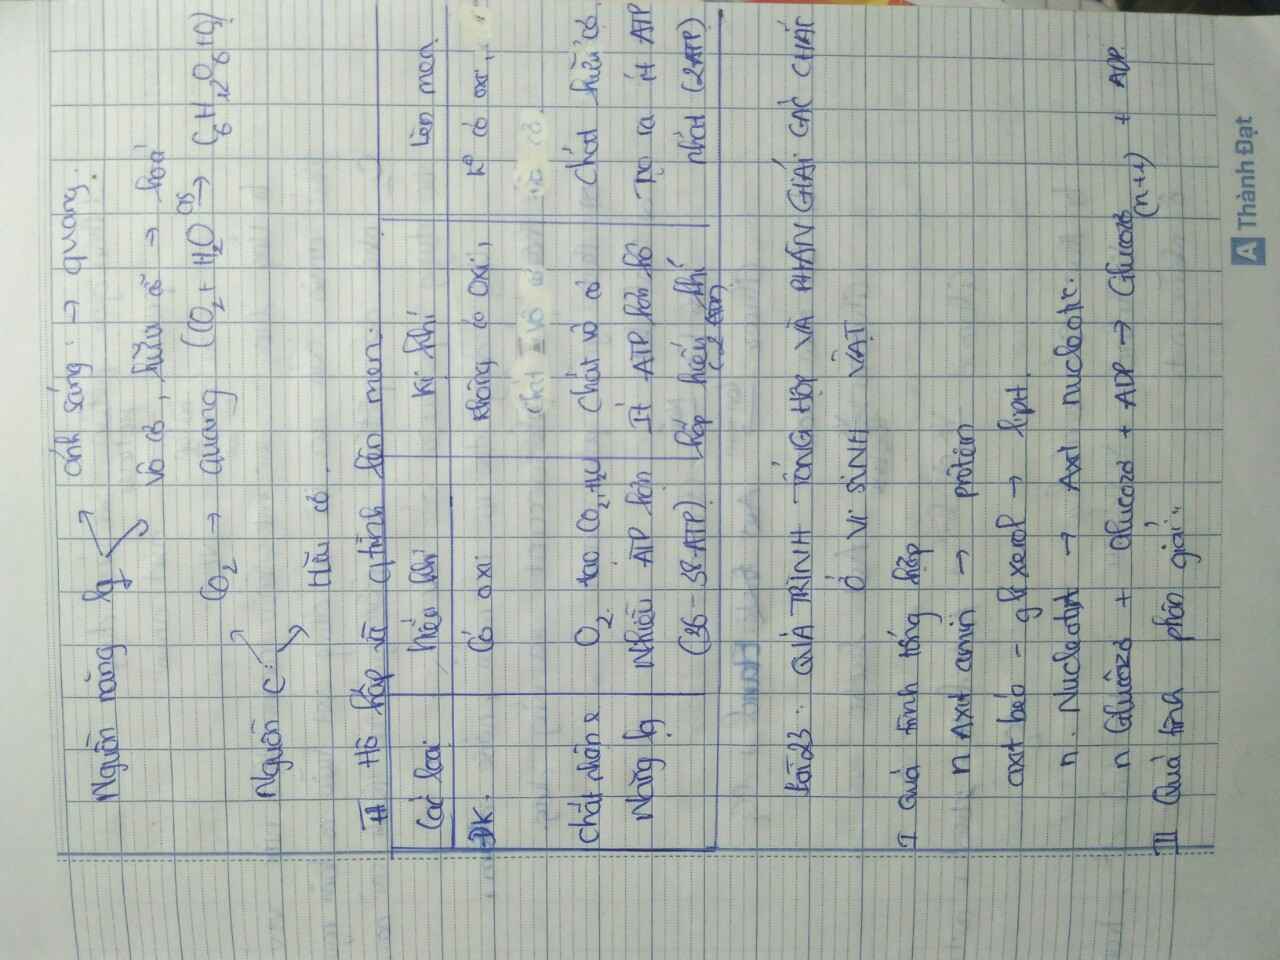 Nguồn năng lg ánh sáng → quang.
vô cơ, hữu cơ → hoá
CO2 → quang (CO2 + H2O as→ C6H12O6 + O2)
Nguồn C
Hữu cơ.
II Hô hấp và lên men.
Các loại hiếu khí Kị khí Lên men.
ĐK. Có oxi không có oxi, ko có oxi,
O2 tạo CO2, H2O Chất vô cơ Chất hữu cơ.
Năng lg Nhiều ATP hơn Ít ATP hơn hô Tạo ra ít ATP
(36-38 ATP) hấp hiếu khí nhất (2ATP)
Bài 23: QUÁ TRÌNH TỔNG HỢP VÀ PHÂN GIẢI CÁC CHẤT
Ở VI SINH VẬT
I Quá trình tổng hợp
n Axit amin → protein
axit béo - glixerol → lipit.
n. Nucleotit → Axit nucleotic.
n Glucozo + Glucozo + ADP → Glucozo (n+1) + ADP
III Quá trình phân giải:
A Thành Đạt